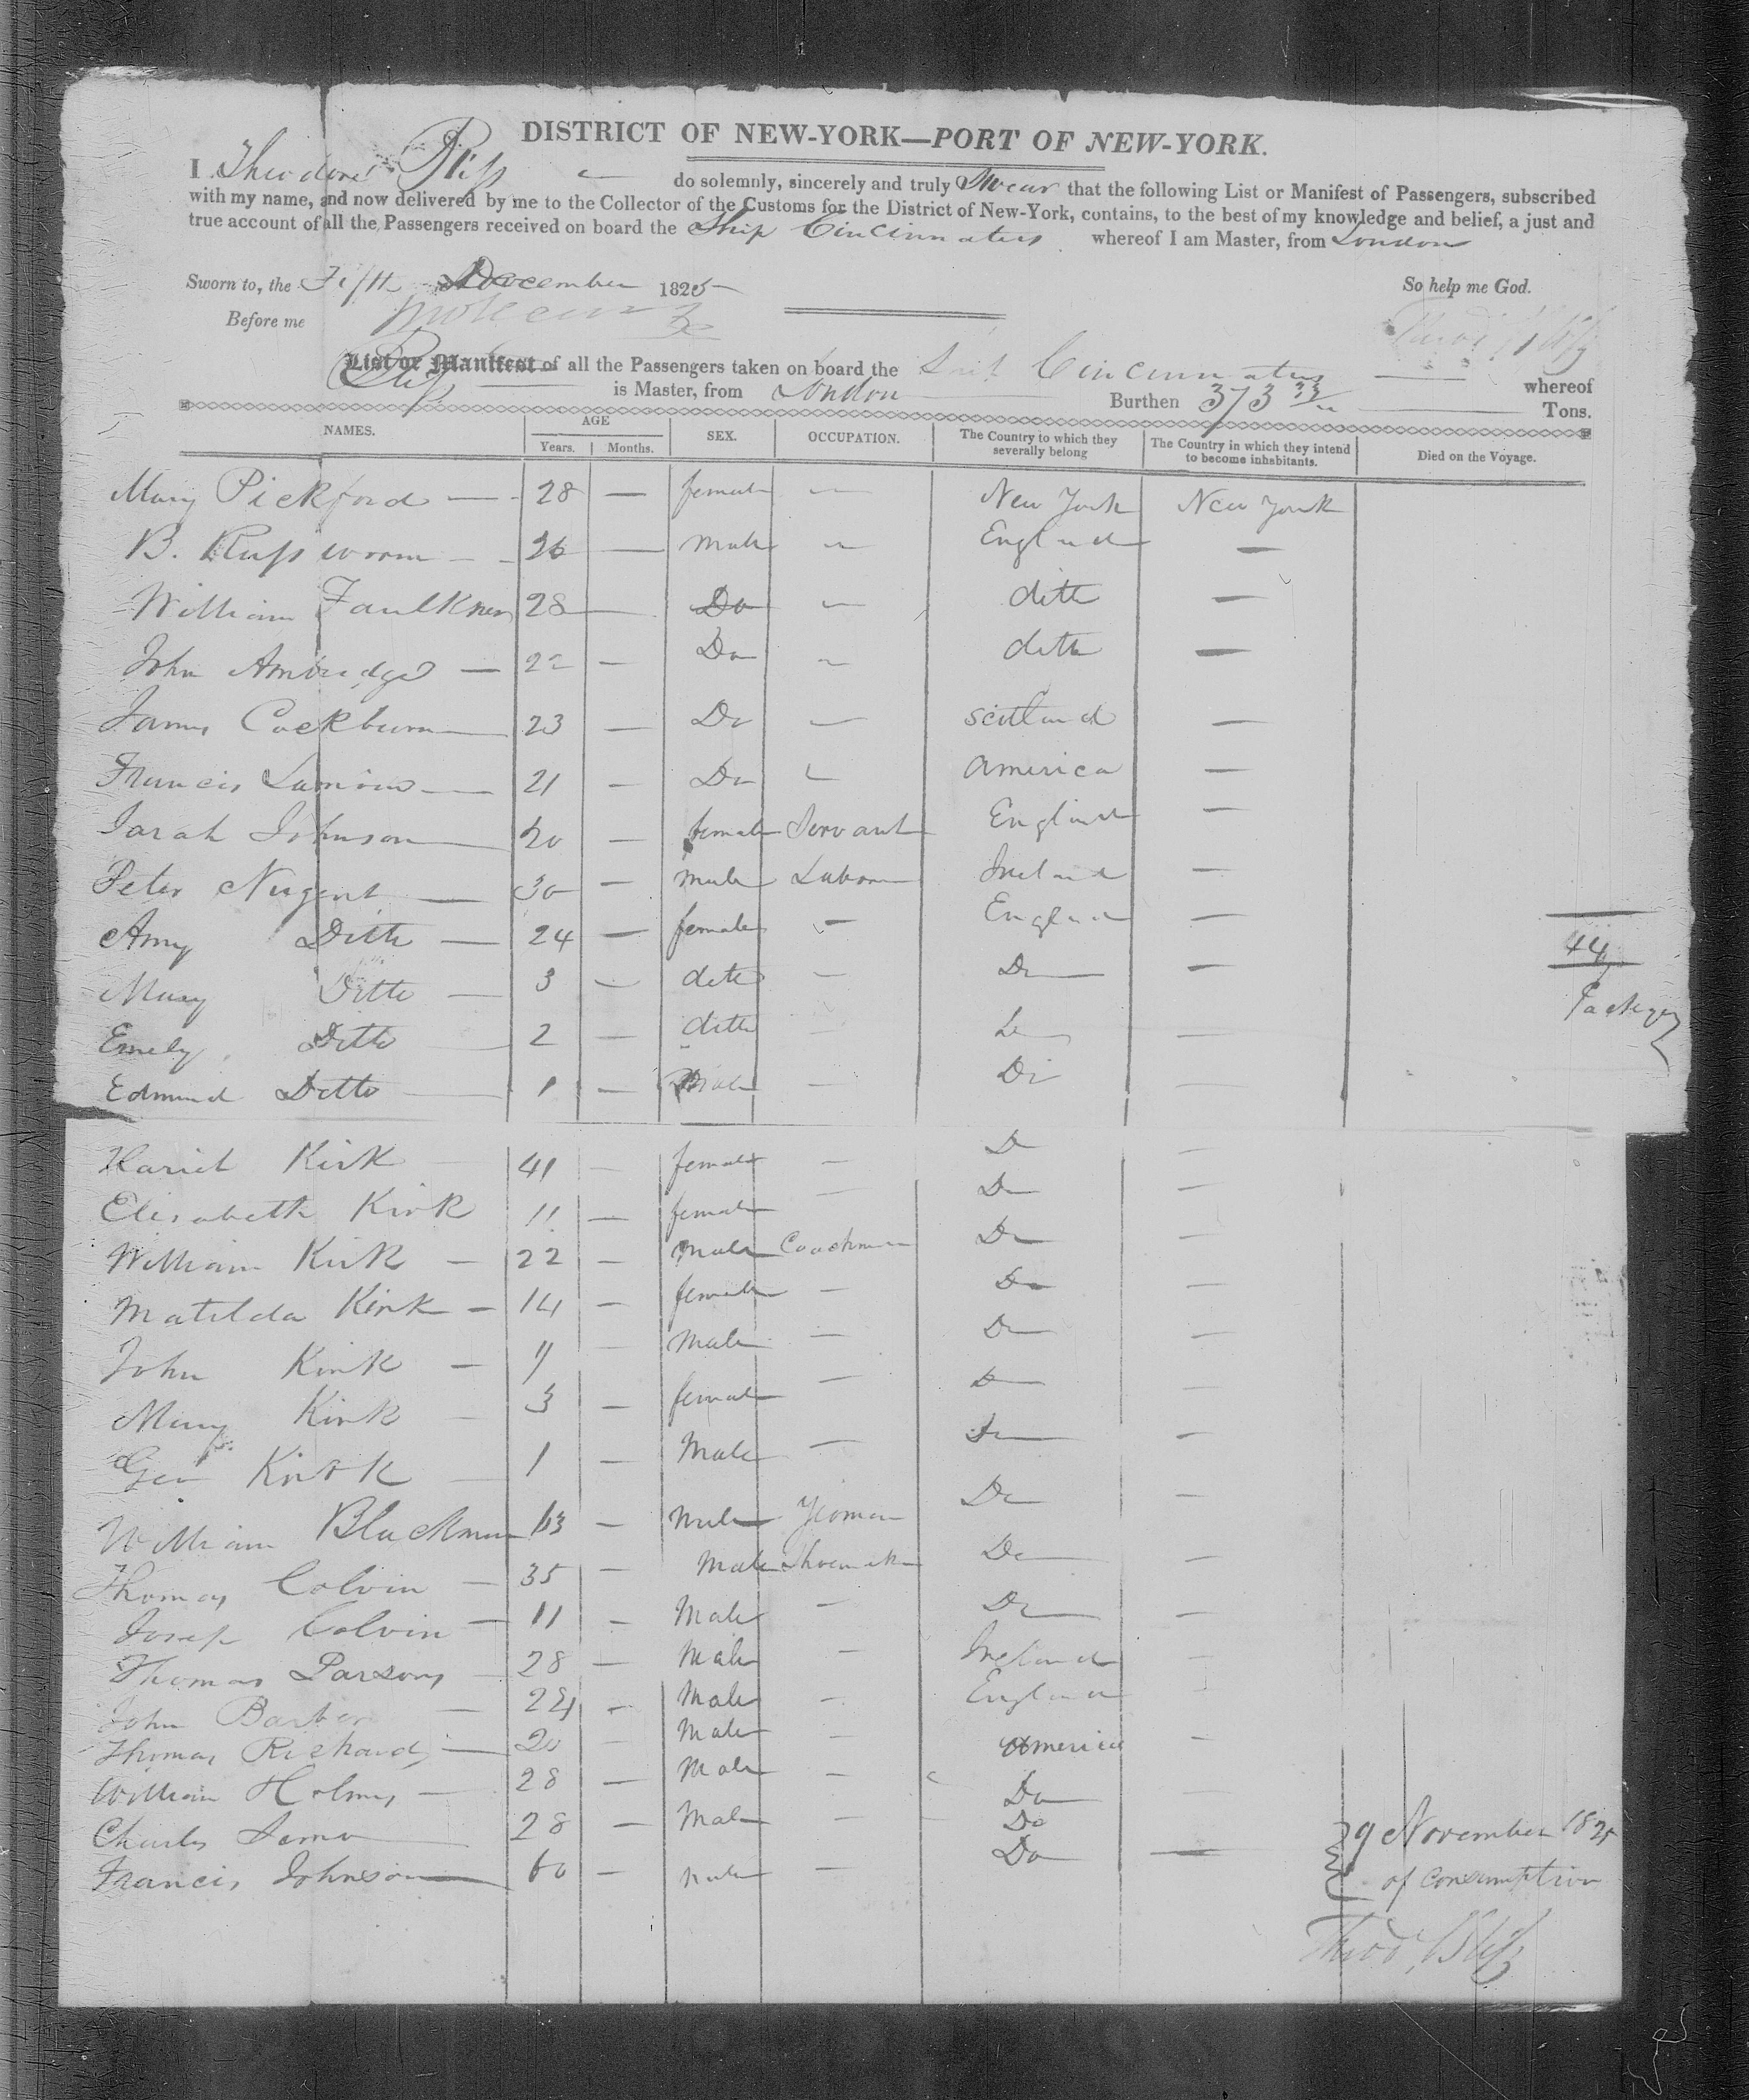 DISTRICT OF NEW-YORK—PORT OF NEW-YORK.
I Theodore Bliss do solemnly, sincerely and truly Swear that the following List or Manifest of Passengers, subscribed
with my name, and now delivered by me to the Collector of the Customs for the District of New-York, contains, to the best of my knowledge and belief, a just and
true account of all the Passengers received on board the Ship Cincinnatus whereof I am Master, from London
Sworn to, the Fifth December 1825 So help me God.
Before me Theod Bliss
List or Manifest of all the Passengers taken on board the Ship Cincinnatus whereof
Bliss is Master, from London Burthen 373 Tons.
NAMES. AGE Years. Months. SEX. OCCUPATION. The Country to which they severally belong The Country in which they intend to become inhabitants. Died on the Voyage.
Mary Pickford — 28 — female — New York New York
B. Russworm — 26 — Male — England —
William Faulkner 28 — Do — ditto —
John Ambridge — 22 — Do — ditto —
James Cockburn — 23 — Do — Scotland —
Francis — 21 — Do — America —
Sarah Johnson — 20 — female Servant England —
Peter Nugent — 30 — Male Labor Ireland —
Amy Ditto — 24 — female — England —
Mary Ditto — 3 — ditto — Do —
44 Packages
Emely Ditto — 2 — ditto — Do —
Edmund Ditto — 1 — Male — Do —
Hariet Kirk — 41 — female — Do —
Elisabeth Kirk 11 — female — Do —
William Kirk — 22 — Male Coachman Do —
Matilda Kirk — 14 — female — Do —
John Kirk — 9 — Male — Do —
Mary Kirk — 3 — female — Do —
Geo Kirk — 1 — Male — Do —
William Blackman 63 — Male Yeoman Do —
Thomas Colvin — 35 — Male Shoemaker Do —
Josep Colvin — 11 — Male — Do —
Thomas Parsons — 28 — Male — Ireland —
John Barber — 24 — Male — England —
Thomas Richards — 20 — Male — America —
William Holmes — 28 — Male — Do —
Charles — 28 — Male — Do 9 November 1825
Francis Johnson — 60 — Male — Do — of Consumption
Theod Bliss